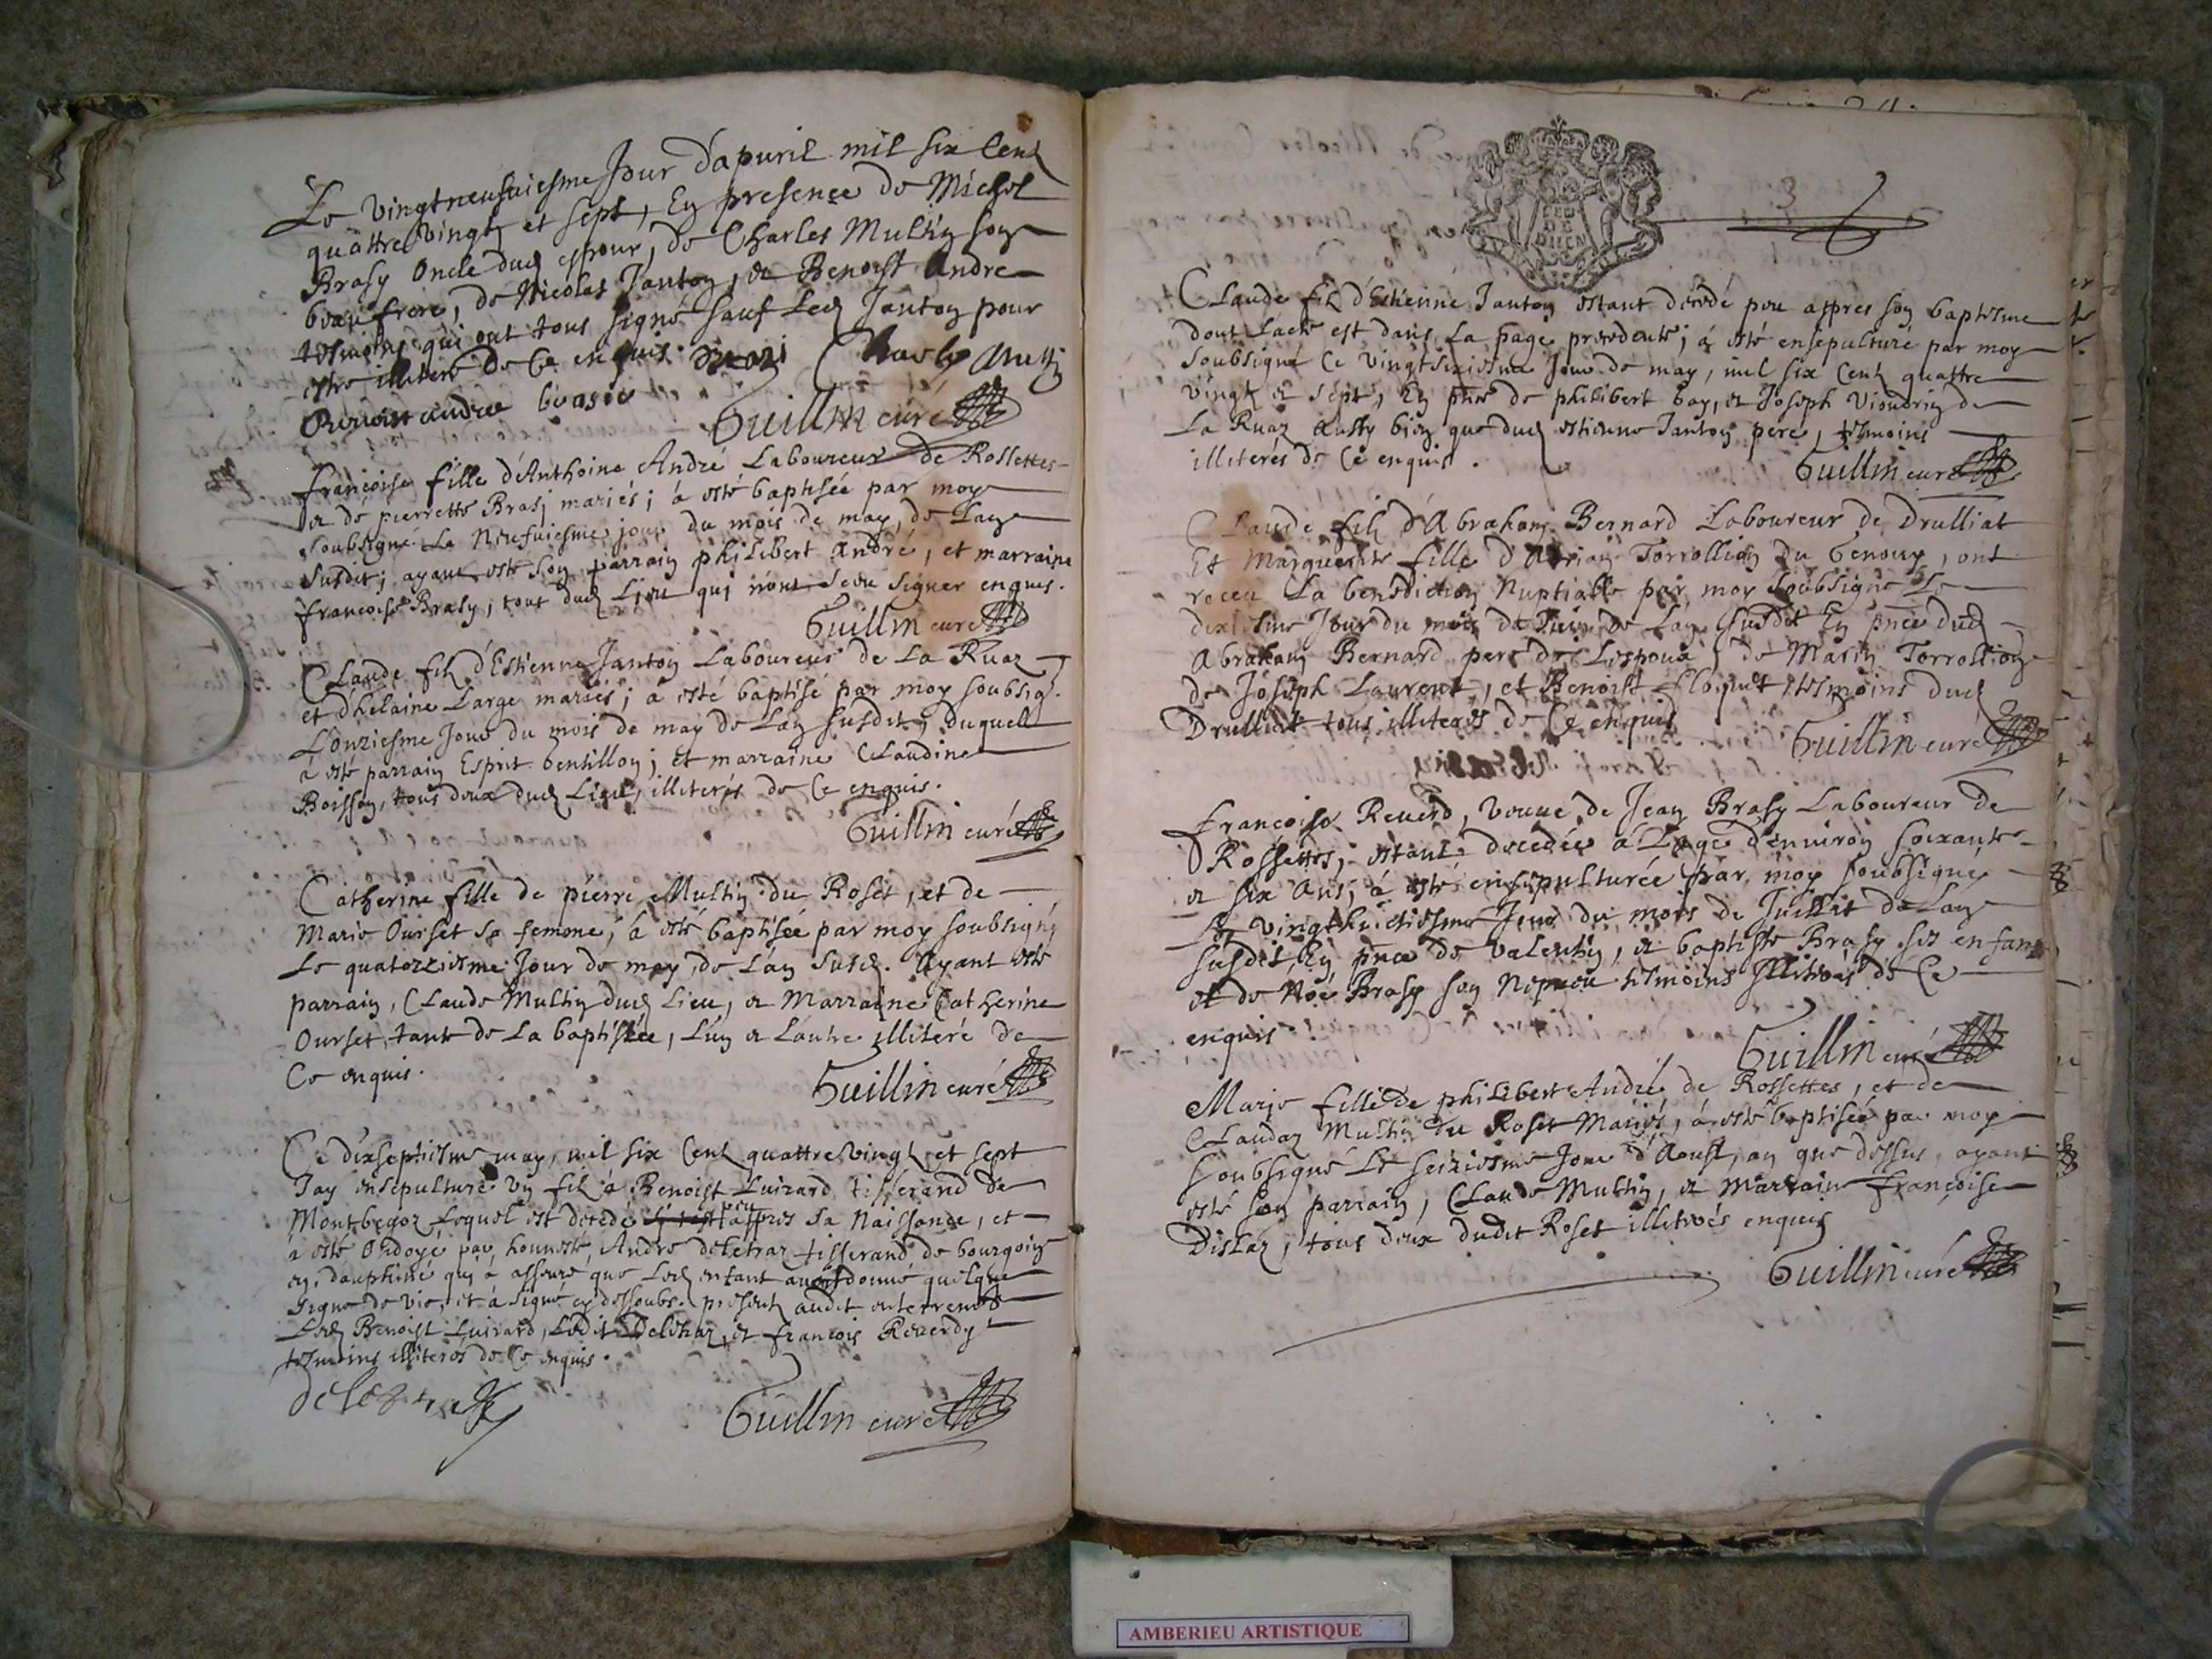 Le vingtneufuiesme Jour d'apuril mil six Centz
quattre vingtz et sept, En presence de Michel
Brasy Oncle dud espoux, de Charles Multin son
beau frere, de Nicolas Janton, et Benoist Andre
tesmoins qui ont tous signé sauf Led Janton pour
estre illiteré de Ce enquis. Charles Multin
Benoist andre brasie
Guillin curé
francoise fille d'Anthoine André Laboureur de Rossettes
et de pierrette Brasj mariés; à esté baptisée par moy
soubsigné Le Neufuiesme jour du mois de may, de L'an
susdit; ayant esté son parrain philibert André, et marraine
francoise Brasy, tout dud Lieu qui n'ont sceu signer enquis.
Guillin curé
Claude filz d'Estienne Janton Laboureur de La Ruaz
et d'helaine Large mariés; à esté baptisé par moy soubsig.
L'onziesme Jour du mois de may de L'an susdit, duquel
à esté parrain Esprit Gentillon; et marraine Claudine
Boisson, tous deux dud Lieu, illiterés de Ce enquis.
Guillin curé
Catherine fille de pierre Multin du Roset, et de
Marie Ourset sa femme, à esté baptisée par moy soubsigné
Le quatorziesme Jour de may, de L'an susd. Ayant esté
parrain, Claude Multin dud Lieu, et Marraine Catherine
Ourset, tante de La baptisée, L'un et L'autre illiteré de
Ce enquis.
Guillin curé
Ce dixseptiesme may, mil six Centz quattre vingtz et sept
J'ay ensepulturé un filz à Benoist Luizard tisserand de
Montbegoz Lequel est decedé peu appres sa Naissance, et
à esté Ondoyé par honneste André deletraz tisserand de bourgoin
en dauphiné qui à asseuré que Led enfant auoit donné quelque
signe de vie, et à signé cy dessoubs. presentz audit enterrement
Led Benoist Luizard, Ledit Deletraz, et francois Reuerdy
tesmoins illiterés de Ce enquis.
deletraz
Guillin curé
3
Claude filz d'Estienne Janton estant décedé peu appres son baptesme
dont L'acte est dans La page precedente; à esté ensepulturé par moy
soubsigné Ce vingtsixiesme Jour de may, mil six Centz quattre
vingtz et sept, En pnce de philibert bay, et Joseph Vioudrin de
La Ruaz Aussy bien que dud estienne Janton pere, tesmoins
illiterés de Ce enquis.
Guillin curé
Claude filz d'Abraham Bernard Laboureur de Drulliat
Et Marguerite fille d'Adrian Torrollion du Genoux, ont
receu La benediction Nuptialle par moy soubsigné Le
dixiesme Jour du mois de Juin de L'an susdit En pnce dud
Abraham Bernard pere de L'espoux, de Marin Torrollion
de Joseph Laurent, et Benoist floquet tesmoins dud
Drulliat tous illiterés de Ce enquis
Guillin curé
francoise Reuerd, veuue de Jean Brasy Laboureur de
Rossettes, estant decedée à L'age d'enuiron soixante
et six Ans; à esté ensepulturée par moy soubsigné
Le vingthuictiesme Jour du mois de Juillet de L'an
susdit, En pnce de valentin, et baptiste Brasy ses enfans
et de Noé Brasy son Nepueu tesmoins illiterés de Ce
enquis
Guillin curé
Marie fille de philibert André de Rossettes, et de
Claudaz Multin du Roset Mariés, à esté baptisée par moy
soubsigné Le seiziesme Jour d'Aoust, an que dessus, ayant
esté son parrain, Claude Multin, et Marraine francoise
Dislaz, tous deux dudit Roset illiterés enquis
Guillin curé
AMBERIEU ARTISTIQUE